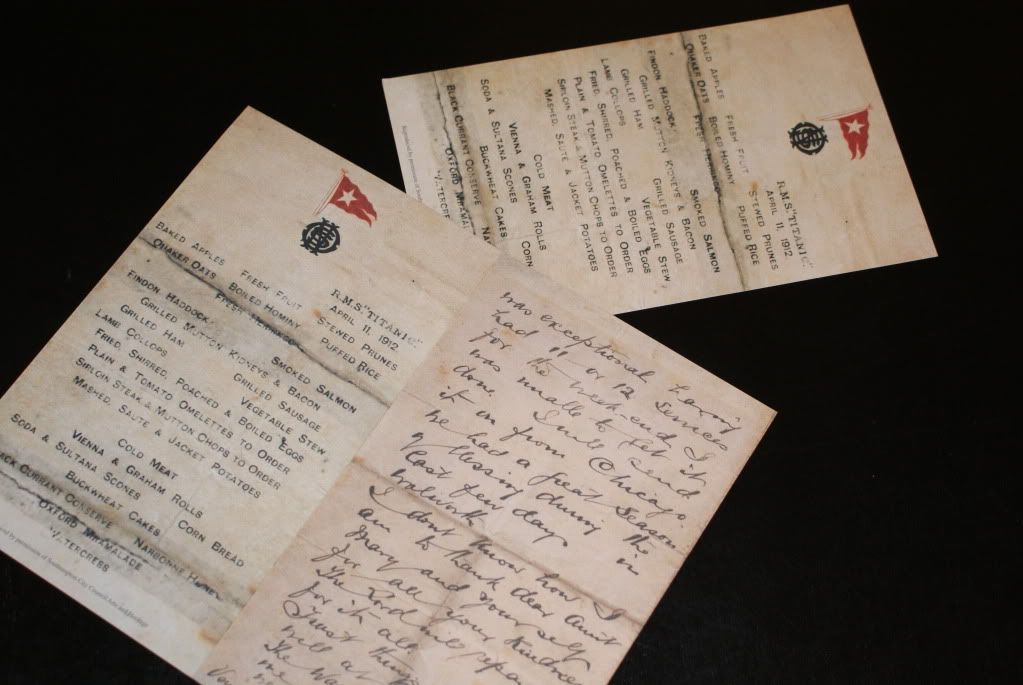 R.M.S. "TITANIC."
APRIL 11. 1912.
BAKED APPLES FRESH FRUIT STEWED PRUNES
QUAKER OATS BOILED HOMINY PUFFED RICE
FRESH HERRINGS
FINDON HADDOCK SMOKED SALMON
GRILLED MUTTON KIDNEYS & BACON
GRILLED HAM GRILLED SAUSAGE
LAMB COLLOPS VEGETABLE STEW
FRIED, SHIRRED, POACHED & BOILED EGGS
PLAIN & TOMATO OMELETTES TO ORDER
SIRLOIN STEAK & MUTTON CHOPS TO ORDER
MASHED, SAUTE & JACKET POTATOES
COLD MEAT
VIENNA & GRAHAM ROLLS
SODA & SULTANA SCONES CORN BREAD
BUCKWHEAT CAKES
BLACK CURRANT CONSERVE NARBONNE HONEY
OXFORD MARMALADE
WATERCRESS
by permission of Southampton City Council Arts and Heritage
R.M.S. "TITANIC."
APRIL 11. 1912.
BAKED APPLES FRESH FRUIT STEWED PRUNES
QUAKER OATS BOILED HOMINY PUFFED RICE
FRESH HERRINGS
FINDON HADDOCK SMOKED SALMON
GRILLED MUTTON KIDNEYS & BACON
GRILLED HAM GRILLED SAUSAGE
LAMB COLLOPS VEGETABLE STEW
FRIED, SHIRRED, POACHED & BOILED EGGS
PLAIN & TOMATO OMELETTES TO ORDER
SIRLOIN STEAK & MUTTON CHOPS TO ORDER
MASHED, SAUTE & JACKET POTATOES
COLD MEAT
VIENNA & GRAHAM ROLLS
SODA & SULTANA SCONES CORN
BUCKWHEAT CAKES
BLACK CURRANT CONSERVE NA
OXFORD MARMALADE
WATERCRES
Reproduced by permission of
was exceptional having
had 11 or 12 services
for the week-end I
was unable to get it
done. I will send
it on from Chicago.
We had a great season
of blessing during the
last few days in
Walworth.
I don't know how I
am to thank dear Aunt
Mary and yourself
for all your kindness
The Lord will repay
for it all
Trust things
will a
The Wa
me